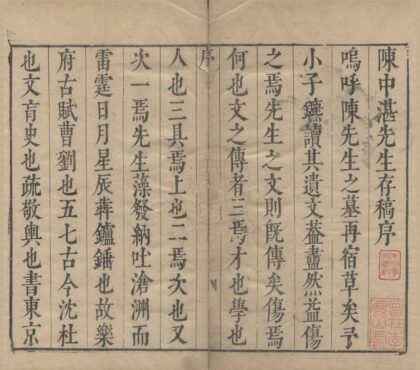 陳中湛先生存稿序
嗚呼陳先生之墓再宿草矣予
小子鑣讀其遺文葢衋然益傷
之焉先生之文則旣傳矣傷焉
何也文之傳者三焉才也學也
序
人也三具焉上也二焉次也又
次一焉先生藻發納吐滄溟而
雷霆日月星辰犇鑪錘也故樂
府古賦曹劉也五七古今沈杜
也文肓史也疏敬輿也書東京